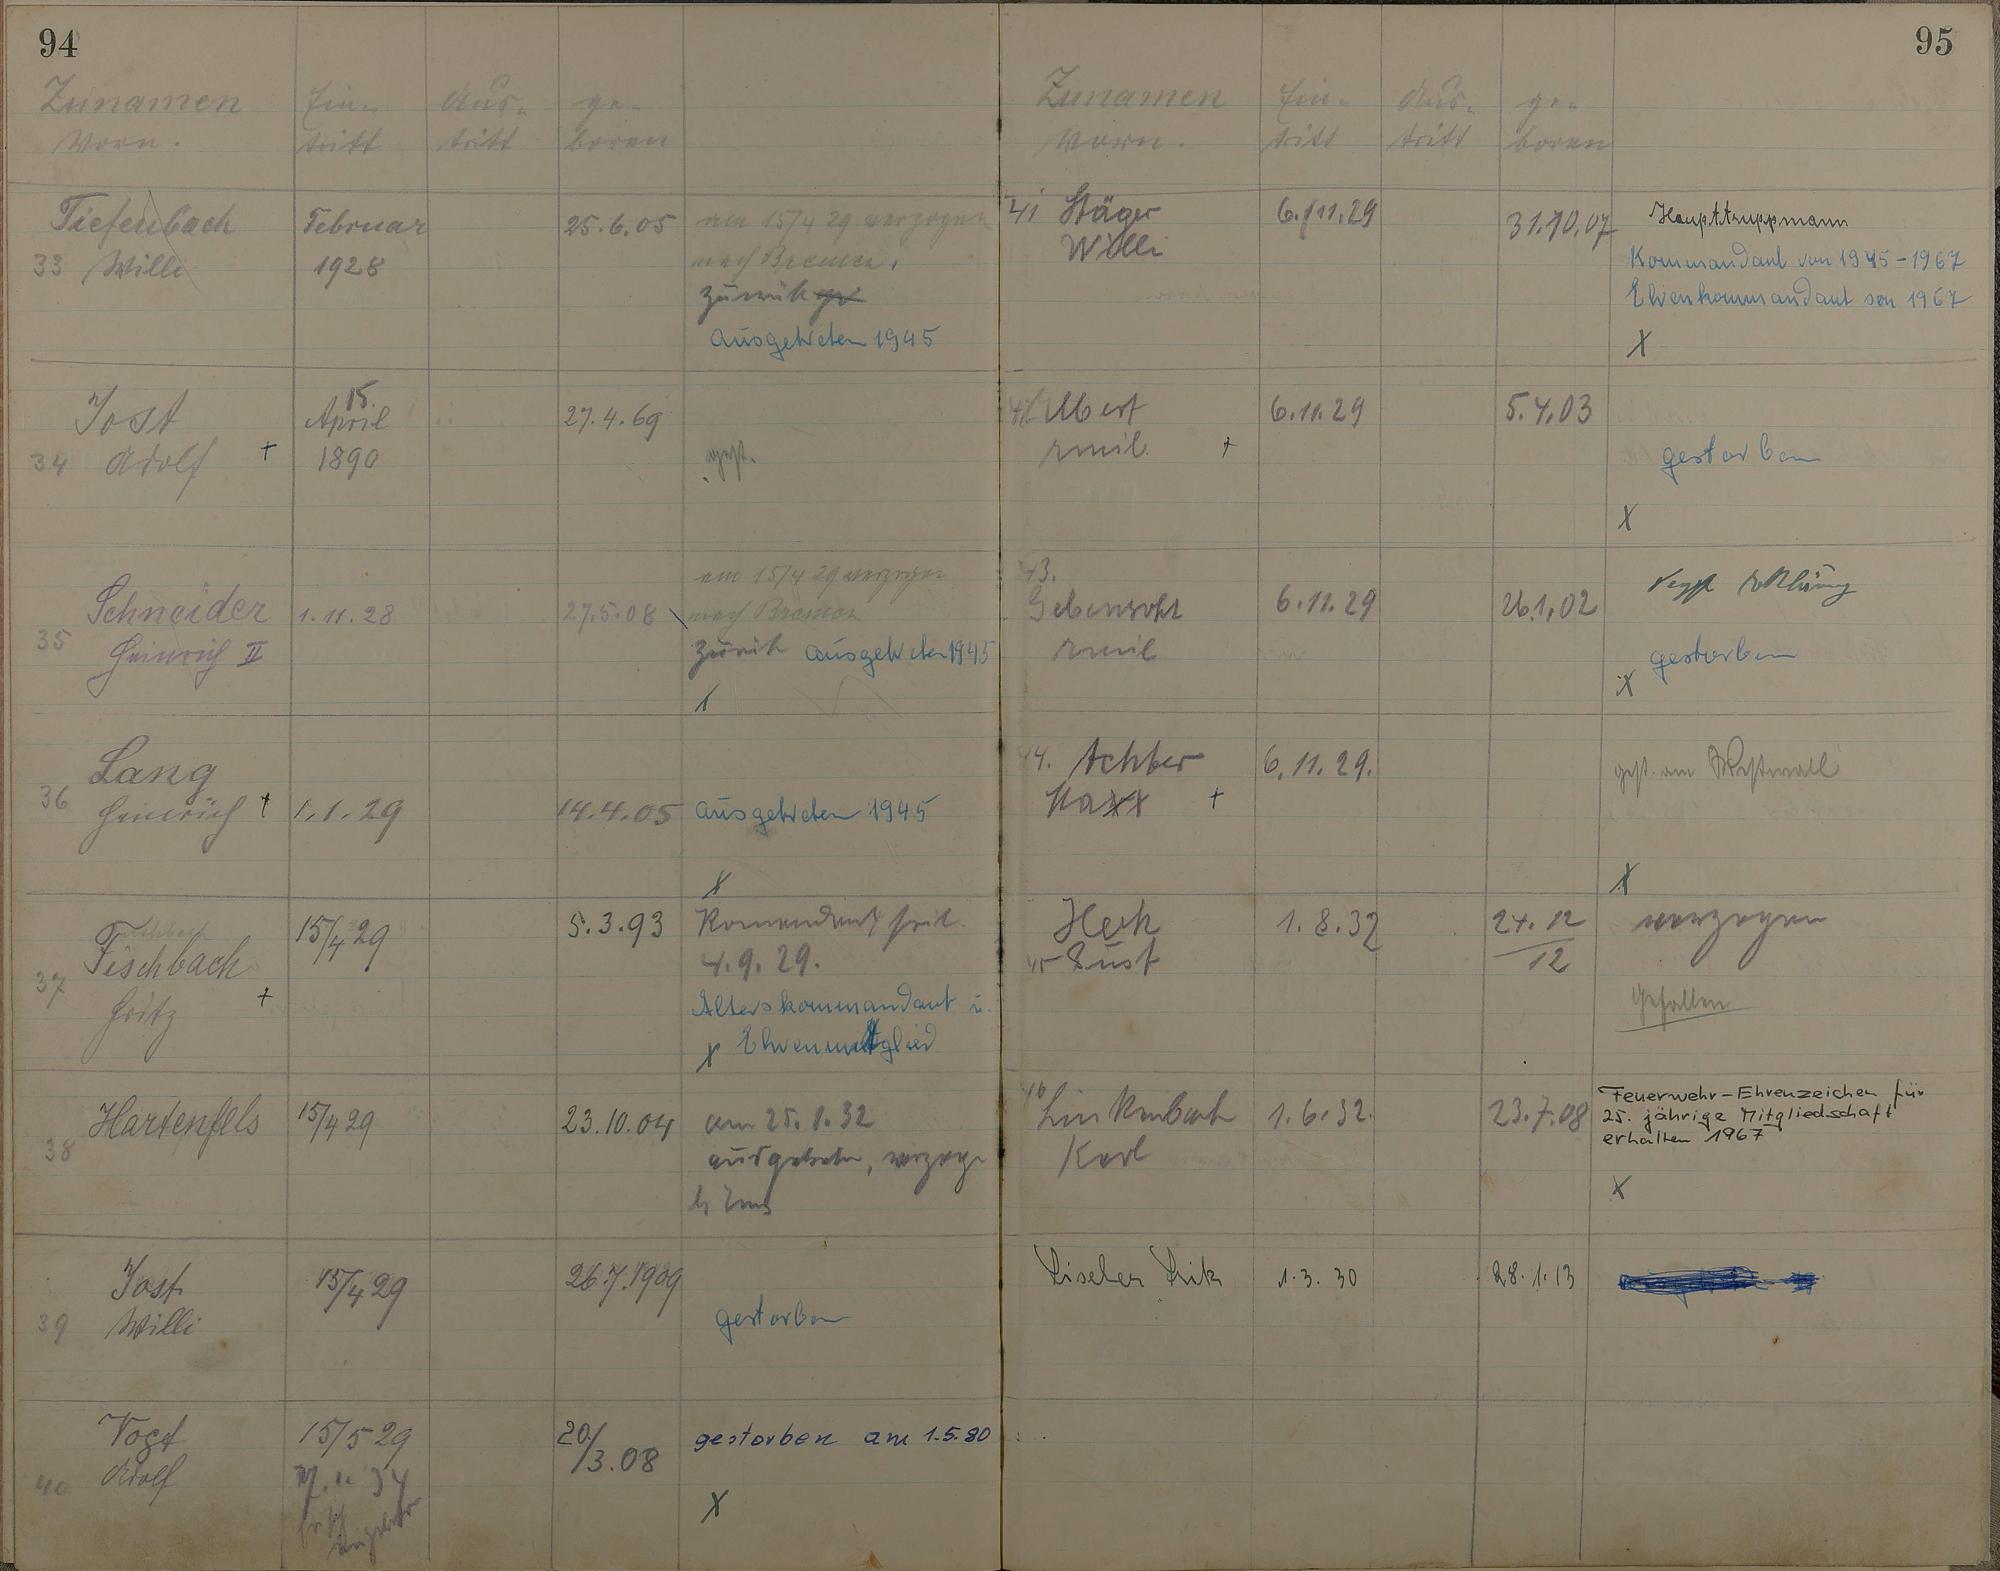 94
Zunamen Ein- Aus- ge-
Vorn. tritt tritt boren
Tiefenbach Februar 25.6.05 am 15/4 29 verzogen
33 Willi 1928 nach Bremen,
zurück
ausgetreten 1945
Jost 15. April 27.4.69
34 Adolf + 1890 gest.
am 15/4 29 verzogen
Schneider 1.11.28 27.5.08 nach Bremen
35 Heinrich II zurück ausgetreten 1945
Lang
36 Heinrich + 1.1.29 14.4.05 ausgetreten 1945
X
Fischbach 15/4 29 5.3.93 Komandant seit
37 Fritz + 4.9.29.
Alterskommandant u.
X Ehrenmitglied
Hartenfels 15/4 29 23.10.04 am 25.1.32
38 ausgetreten, verzogen
Jost 15/4 29 26.7.1909
39 Willi gestorben
Vogt 15/5 29 20/3.08 gestorben am 1.5.80
40 Adolf
X
95
Zunamen Ein- Aus- ge-
Vorn. tritt tritt boren
41 Stäger 6.11.29 31.10.07 Haupttruppmann
Willi Kommandant von 1945-1967
Ehrenkommandant von 1967
X
Albert 6.11.29 5.4.03
Emil + gestorben
X
43.
Gebensroht 6.11.29 26.1.02
Emil gestorben
X
44. Achber 6.11.29. gest. am Westwall
Max +
X
Heck 1.8.32 24.12 verzogen
45 Gust 12
Gefallen
46 Linkenbach 1.6.32. 23.7.08 Feuerwehr-Ehrenzeichen für
25. jährige Mitgliedschaft
Karl erhalten 1967
X
1.3.30 28.1.13